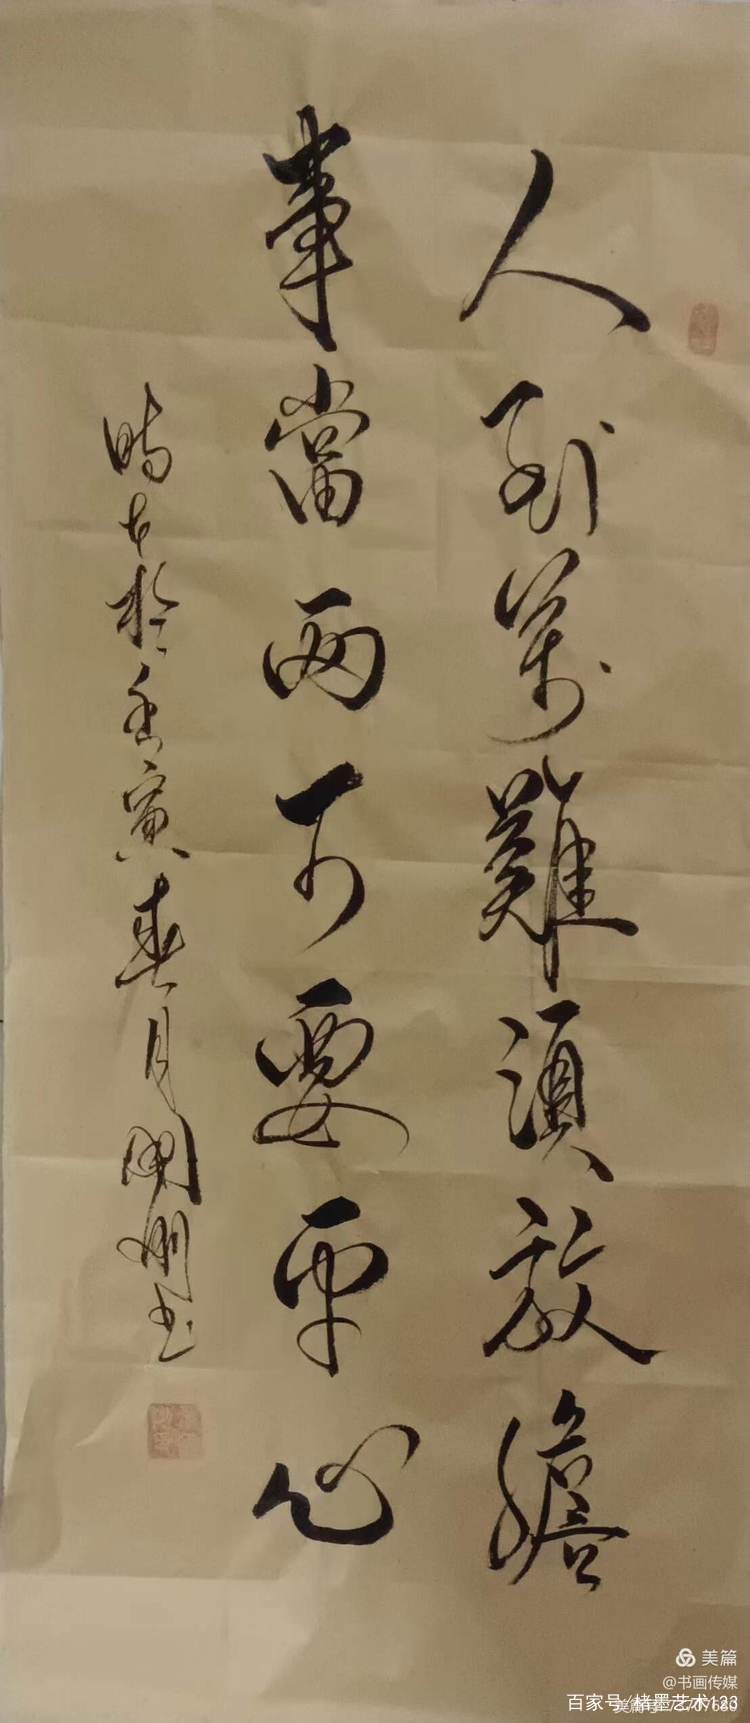 人到萬難須放膽
事當兩可要平心
時在於壬寅春月明书
美篇
@书画传媒
百家号/楮墨艺术123